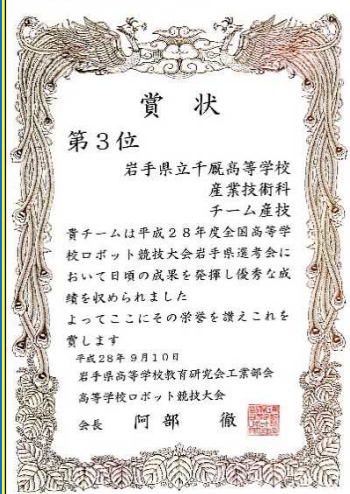 賞状
第3位
岩手県立千厩高等学校
産業技術科
チーム産技
貴チームは平成28年度全国高等学
校ロボット競技大会岩手県選考会に
おいて日頃の成果を発揮し優秀な成
績を収められました
よってここにその栄誉を讃えこれを
賞します
平成28年9月10日
岩手県高等学校教育研究会工業部会
高等学校ロボット競技大会
会長 阿部 徹